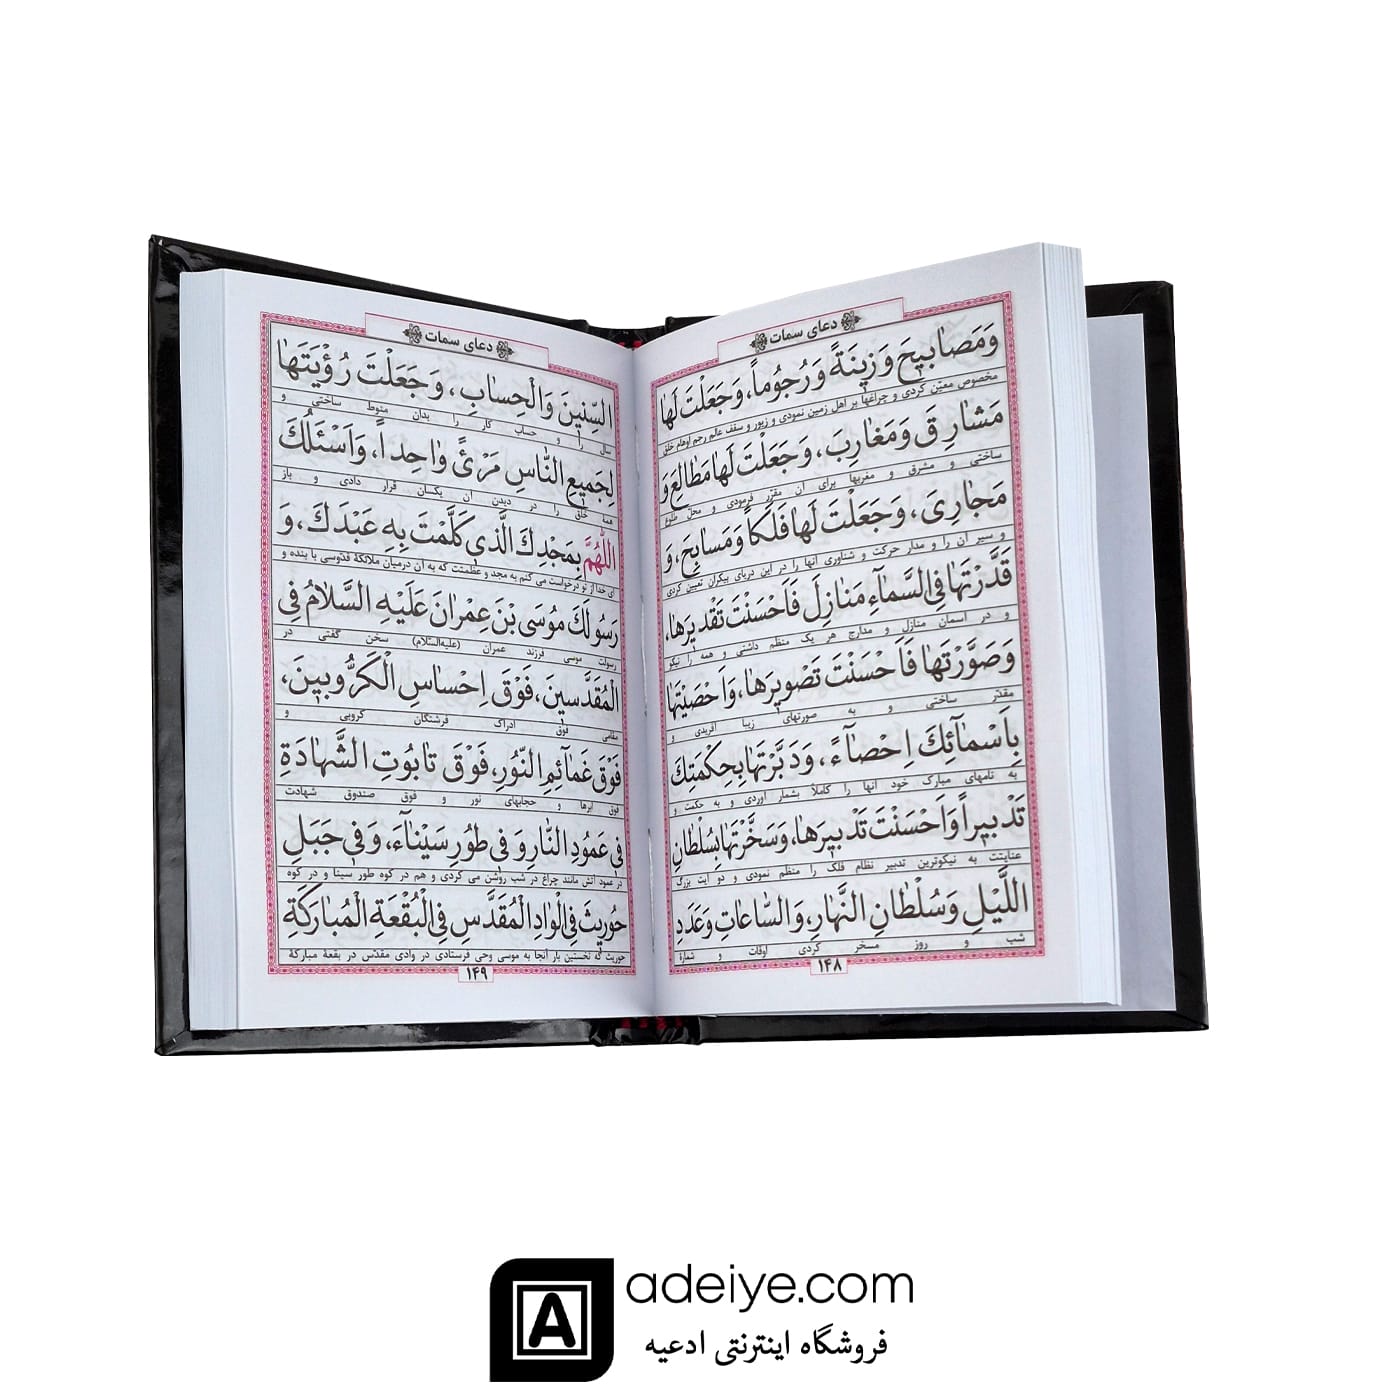 دعای سمات
وَمَصَابيحَ وَزينَةً وَرُجُوماً، وَجَعَلْتَ لَهٰا
مخصوص معیّن کردی و چراغها بر اهل زمین نمودی و زیور و سقف عالم رجم اوهام خلق
مَشٰارِقَ وَمَغٰارِبَ، وَجَعَلْتَ لَهٰا مَطٰالِعَ وَ
ساختی و مشرق و مغربها برای آن مقرّر فرمودی و محلّ طلوع
مَجٰارِىَ، وَجَعَلْتَ لَهٰا فَلَكاً وَمَسٰابِحَ، وَ
و سیر آن را و مدار حرکت و شناوری آنها را در این دریای بیکران تعیین کردی
قَدَّرْتَهٰا فِى السَّمٰآءِ مَنٰازِلَ فَاَحْسَنْتَ تَقْديرَهٰا،
و در آسمان منازل و مدارج هر یک منظم داشتی و همه را نیکو
وَصَوَّرْتَهٰا فَاَحْسَنْتَ تَصْويرَهٰا، وَاَحْصَيْتَهٰا
مقدّر ساختی و به صورتهای زیبا آفریدی و
بِاَسْمٰآئِكَ اِحْصٰآءً، وَدَبَّرْتَهٰا بِحِكْمَتِكَ
به نامهای مبارک خود آنها را کاملاً بشمار آوردی و به حکمت و
تَدْبيراً وَاَحْسَنْتَ تَدْبيرَهٰا، وَسَخَّرْتَهٰا بِسُلْطٰانِ
عنایتت به نیکوترین تدبیر نظام فلک را منظم نمودی و دو آیت بزرگ
اللَّيْلِ وَسُلْطٰانِ النَّهٰارِ، وَالسّٰاعٰاتِ وَعَدَدِ
شب و روز مسخر کردی اوقات و شمارهٔ
۱۴۸
دعای سمات
السِّنينَ وَالْحِسٰابِ، وَجَعَلْتَ رُؤْيَتَهٰا
سال را و حساب کار را بدان منوط ساختی و
لِجَميعِ النّٰاسِ مَرْئً وٰاحِداً، وَاَسْئَلُكَ
همهٔ خلق را در دیدن آن یکسان قرار دادی و باز
اللّٰهُمَّ بِمَجْدِكَ الَّذى كَلَّمْتَ بِهِ عَبْدَكَ، وَ
ای خدا از تو درخواست می کنم به مجد و عظمتت که به آن درمیان ملائکهٔ قدّوسی با بنده و
رَسُولَكَ مُوسَى بْنَ عِمْرٰانَ عَلَيْهِ السَّلاٰمُ فِى
رسولت موسی فرزند عمران (علیه‌السّلام) سخن گفتی در
الْمُقَدَّسينَ، فَوْقَ اِحْسٰاسِ الْكَرُّوبينَ،
مقامی فوق ادراک فرشتگان کروبی و
فَوْقَ غَمٰآئِمِ النُّورِ، فَوْقَ تٰابُوتِ الشَّهٰادَةِ
فوق ابرها و حجابهای نور و فوق صندوق شهادت
فى عَمُودِ النّٰارِ وَفى طُورِ سَيْنٰاءَ، وَفى جَبَلِ
در عمود آتش مانند چراغ در شب روشن می کردی و هم در کوه طور سینا و در کوه
حُوريثَ فِى الْوٰادِ الْمُقَدَّسِ فِى الْبُقْعَةِ الْمُبٰارَكَةِ
حوریث که نخستین بار آنجا به موسی وحی فرستادی در وادی مقدّس در بقعهٔ مبارکهٔ
۱۴۹
A adeiye.com
فروشگاه اینترنتی ادعیه